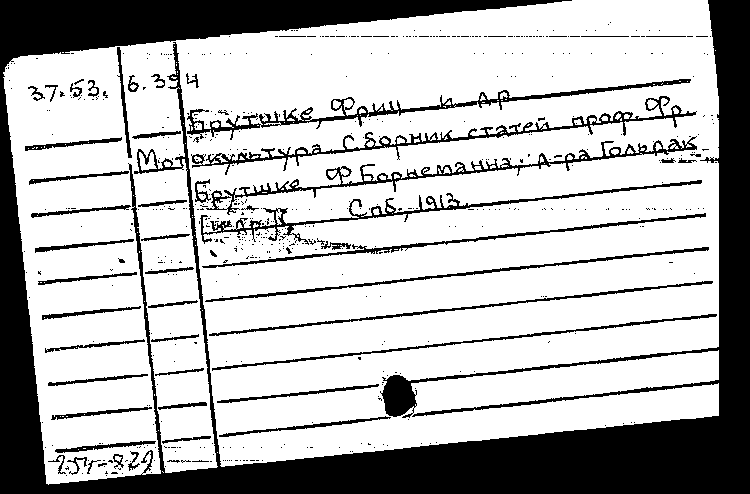 37.53. 6.394
Брутшке, Фриц и др
Мотокультура. Сборник статей проф. Фр.
Брутшке, Ф. Борнеманна, д-ра Гольдак
[и др.] Спб., 1913.
254-829